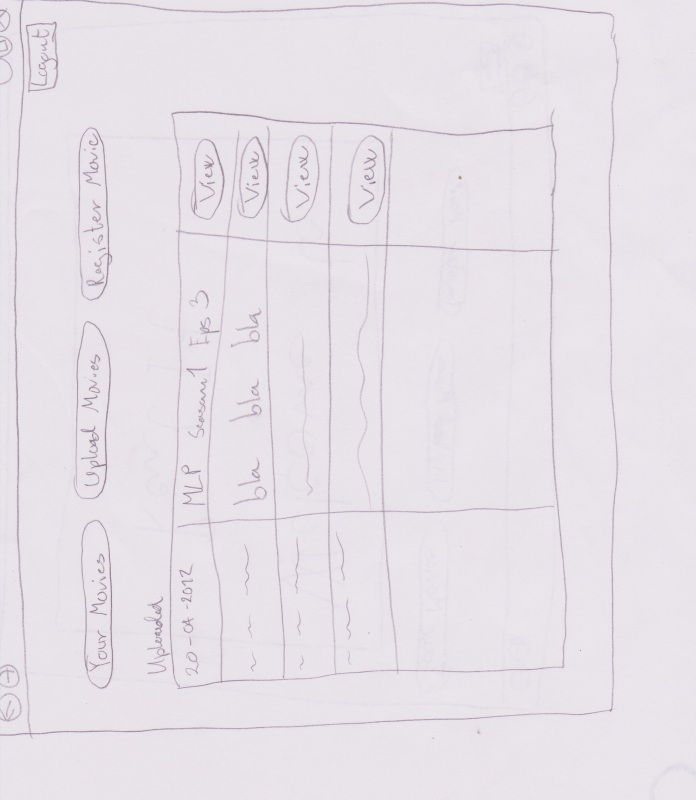 Logout
Your Movies Upload Movies Register Movie
Uploaded
20-04-2012 MLP Season 1 Eps 3 View
bla bla bla View
View
View